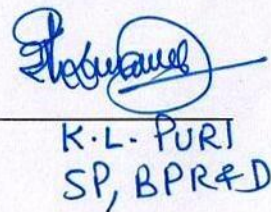 K.L. PURI
SP, BPR&D